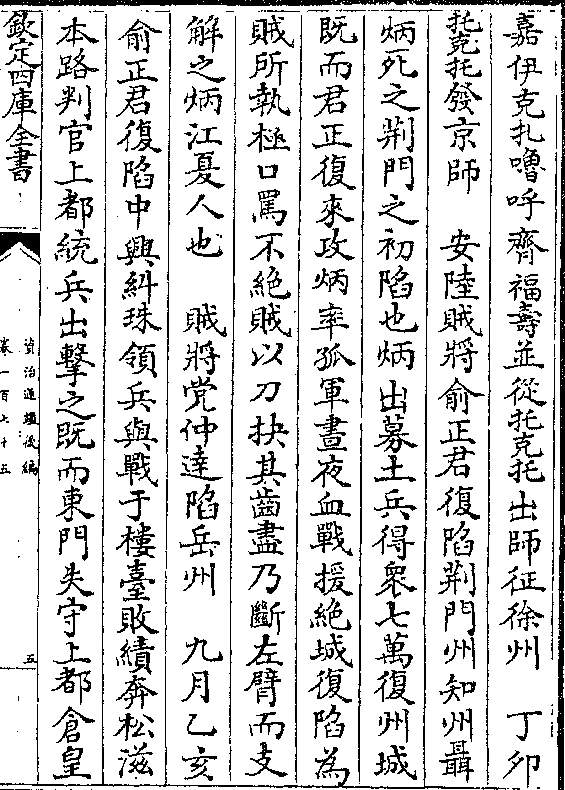 嘉伊克扎嚕呼齊福壽並從托克托出師征徐州　丁卯
托克托發京師　安陸賊將俞正君復陷荆門州知州聶
炳死之荆門之初陷也炳出募土兵得衆七萬復州城
既而君正復來攻炳率孤軍晝夜血戰援絶城復陷為
賊所執極口罵不絶賊以刀抉其齒盡乃斷左臂而支
解之炳江夏人也　賊將党仲達陷岳州　九月乙亥
俞正君復陷中興糾珠領兵與戰于樓臺敗績奔松滋
本路判官上都統兵出擊之既而東門失守上都倉皇
欽定四庫全書
資治通鑑後編
卷一百七十五
五